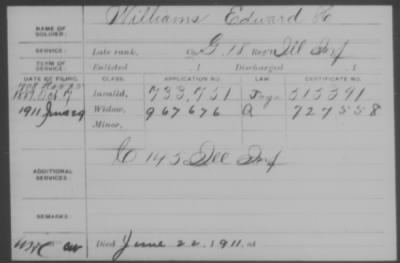 NAME OF SOLDIER: Williams Edward
SERVICE: Late rank, Co. G, 18 Reg't Ill Inf
TERM OF SERVICE: Enlisted , 1 Discharged , 1
DATE OF FILING. CLASS. APPLICATION NO. LAW. CERTIFICATE NO.
Oct 17 Invalid, 733,751 515391
1911 June 29 Widow, 967676 727558
Minor,
ADDITIONAL SERVICES: C 145 Ill Inf
REMARKS:
Died June 22, 1911, at